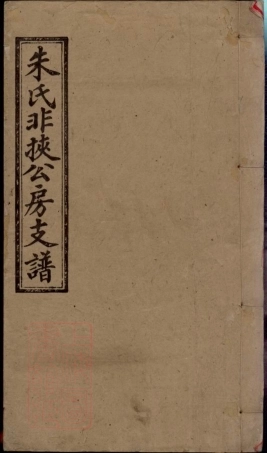 朱氏非挾公房支譜